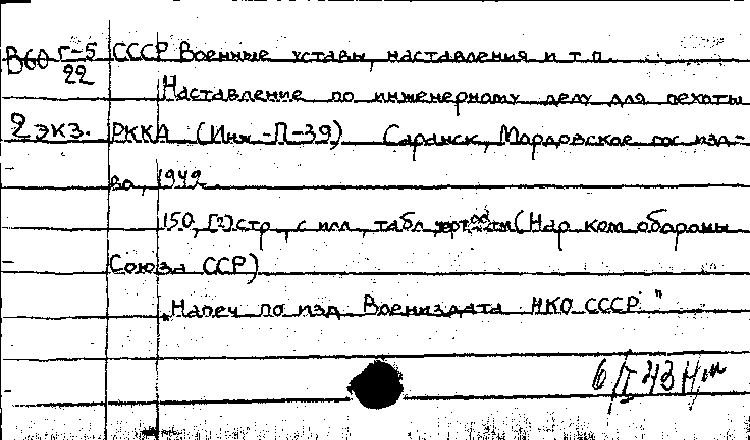 В60 г-5/22 СССР Военные уставы, наставления и т п.
Наставление по инженерному делу для пехоты
2 экз. РККА (Инж-П-39) Саранск, Мордовское гос изд-
во, 1942
150, [2] стр, с илл, табл, (Нар ком обороны
Союза ССР)
"Напеч по изд Воениздата НКО СССР"
6/I 43